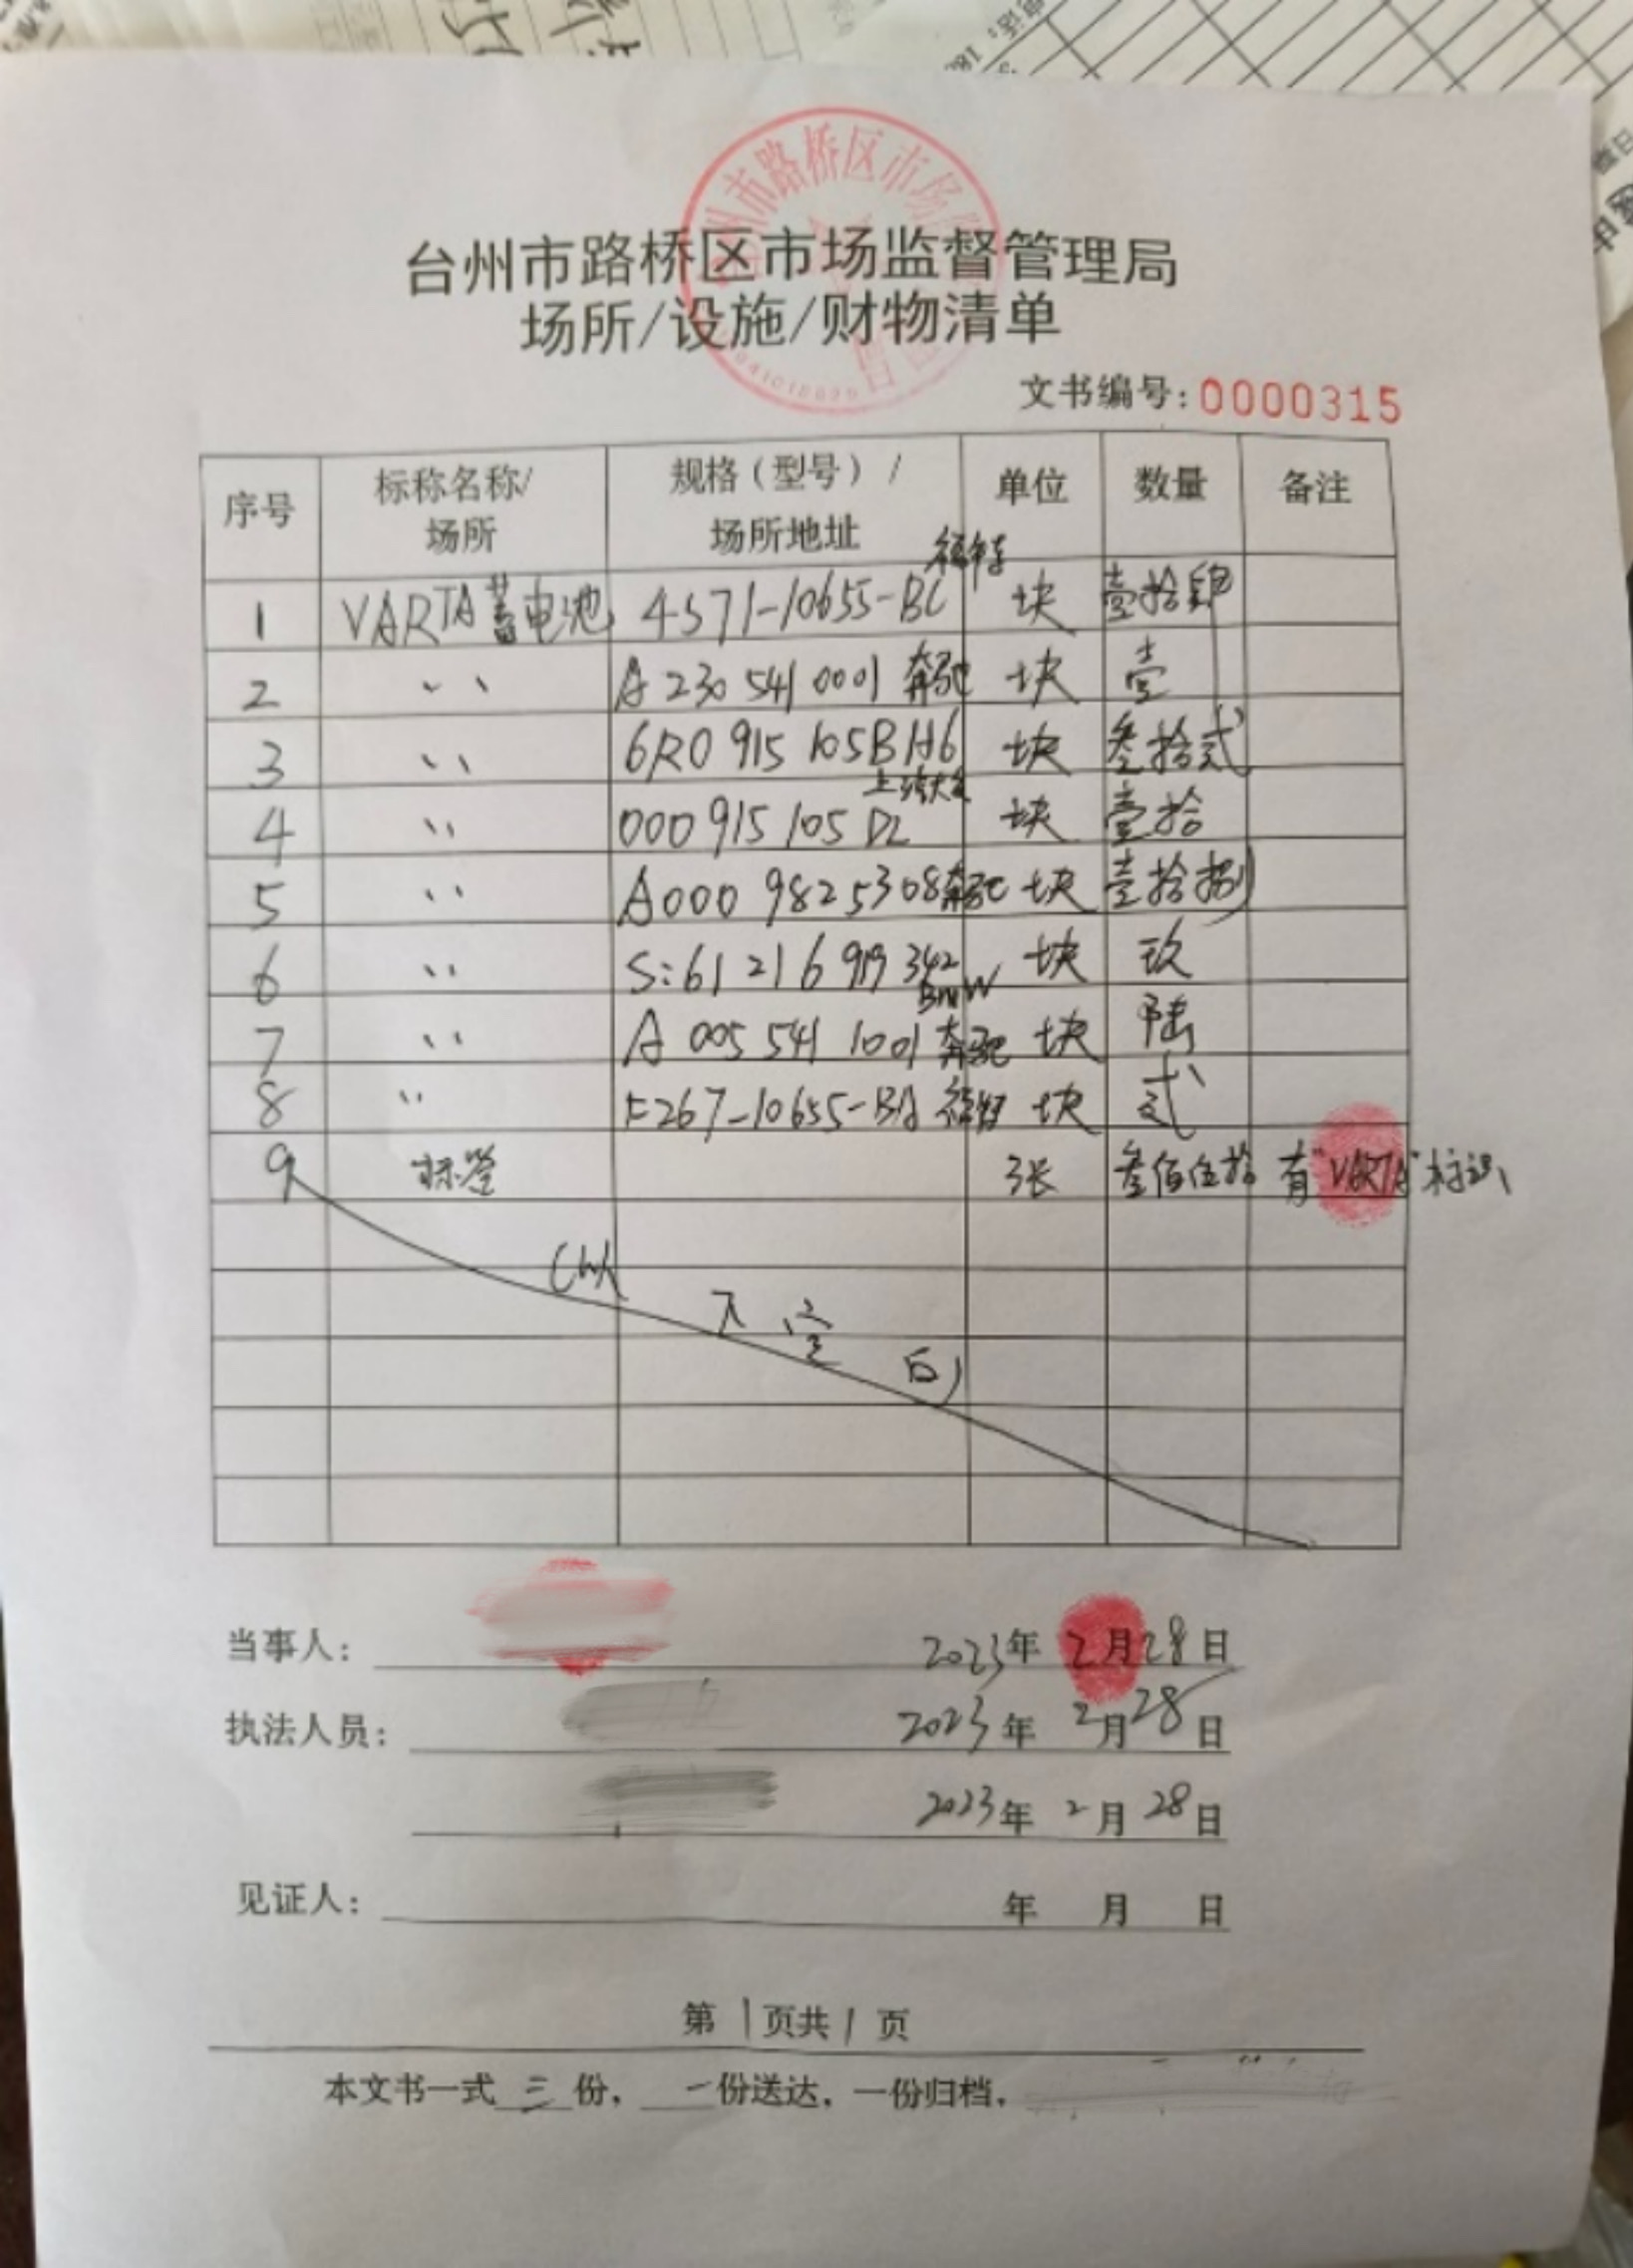 台州市路桥区市场监督管理局
场所/设施/财物清单
文书编号:0000315
序号 标称名称/场所 规格(型号)/场所地址 单位 数量 备注
1 VARTA蓄电池 4571-10655-BC 福特 块 壹拾肆
2 〃 A 230 541 0001 奔驰 块 壹
3 〃 6R0 915 105B H6 上海大众 块 叁拾贰
4 〃 000 915 105 DL 块 壹拾
5 〃 A000 982 5308 奔驰 块 壹拾捌
6 〃 S:61 21 6 919 342 BMW 块 玖
7 〃 A 005 541 1001 奔驰 块 陆
8 〃 F267-10655-BA 福特 块 贰
9 标签 张 叁佰伍拾 有"VARTA"标识
(以下空白)
当事人: 2023年2月28日
执法人员: 2023年2月28日
2023年2月28日
见证人: 年 月 日
第1页共1页
本文书一式三份,一份送达,一份归档,